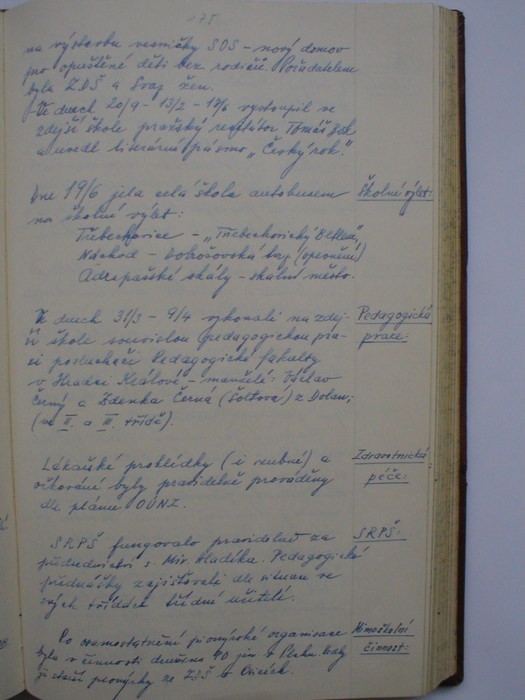 75.
na výstavbu vesničky SOS - nový domov
pro opuštěné děti bez rodičů. Pořadatelem
byla ZDŠ a Svaz žen.
Ve dnech 20/9 - 13/2 - 17/6 vystoupil ve
zdejší škole pražský recitátor Tomáš
a uvedl literární pásmo „Český rok".
Dne 19/6 jela celá škola autobusem
Školní výlet:
na školní výlet:
Třebechovice - „Třebechovický Betlém",
Náchod - Dobrošovská (opevnění)
Adršpašské skály - skalní město.
V dnech 31/3 - 9/4 vykonali na zdej-
Pedagogická
ší škole souvislou pedagogickou pra-
praxe:
xi posluchači Pedagogické fakulty
v Hradci Králové - manželé: Václav
Černý a Zdenka Černá (Šoltova) z Dolan;
(ve II. a III. třídě).
Lékařské prohlídky (i zubní) a
Zdravotnická
očkování byly pravidelně prováděny
péče:
dle plánu OÚNZ.
SRPŠ fungovalo pravidelně za
SRPŠ:
předsednictví s. Mir. Hladíka. Pedagogické
přednášky zajišťovali dle situace ve
svých třídách třídní učitelé.
Po osamostatnění pionýrské organisace
Mimoškolní
byla v činnosti 40
činnost:
starší pionýrky ze ZDŠ v